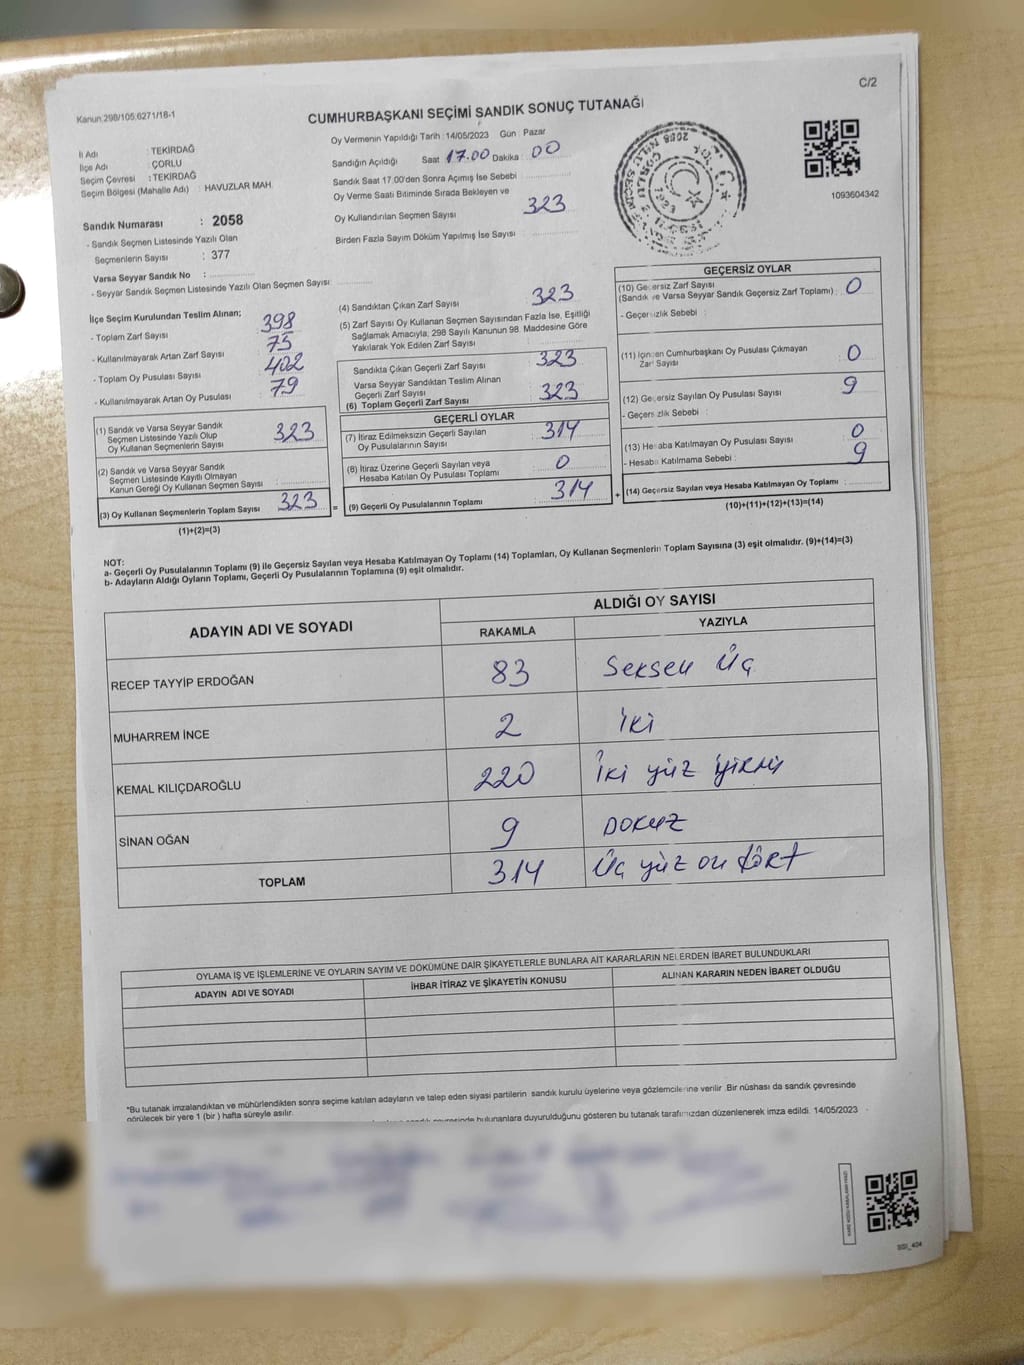 C/2
Kanun.298/105.6271/16-1
CUMHURBAŞKANI SEÇİMİ SANDIK SONUÇ TUTANAĞI
İl Adı : TEKİRDAĞ
İlçe Adı : ÇORLU
Seçim Çevresi : TEKİRDAĞ
Seçim Bölgesi (Mahalle Adı) : HAVUZLAR MAH.
Sandık Numarası : 2058
- Sandık Seçmen Listesinde Yazılı Olan
Seçmenlerin Sayısı : 377
Varsa Seyyar Sandık No :
- Seyyar Sandık Seçmen Listesinde Yazılı Olan Seçmen Sayısı:
Oy Vermenin Yapıldığı Tarih : 14/05/2023 Gün : Pazar
Sandığın Açıldığı Saat 17.00 Dakika : 00
Sandık Saat 17.00'den Sonra Açımış İse Sebebi :
Oy Verme Saati Bitiminde Sırada Bekleyen ve
Oy Kullandırılan Seçmen Sayısı 323
Birden Fazla Sayım Döküm Yapılmış İse Sayısı :
1093604342
İlçe Seçim Kurulundan Teslim Alınan;
- Toplam Zarf Sayısı : 398
- Kullanılmayarak Artan Zarf Sayısı : 75
- Toplam Oy Pusulası Sayısı : 402
- Kullanılmayarak Artan Oy Pusulası : 79
(1) Sandık ve Varsa Seyyar Sandık
Seçmen Listesinde Yazılı Olup
Oy Kullanan Seçmenlerin Sayısı : 323
(2) Sandık ve Varsa Seyyar Sandık
Seçmen Listesinde Kayıtlı Olmayan
Kanun Gereği Oy Kullanan Seçmen Sayısı :
(3) Oy Kullanan Seçmenlerin Toplam Sayısı : 323
(1)+(2)=(3)
(4) Sandıktan Çıkan Zarf Sayısı : 323
(5) Zarf Sayısı Oy Kullanan Seçmen Sayısından Fazla İse, Eşitliği
Sağlamak Amacıyla; 298 Sayılı Kanunun 98. Maddesine Göre
Yakılarak Yok Edilen Zarf Sayısı :
Sandıkta Çıkan Geçerli Zarf Sayısı : 323
Varsa Seyyar Sandıktan Teslim Alınan
Geçerli Zarf Sayısı
(6) Toplam Geçerli Zarf Sayısı : 323
GEÇERLİ OYLAR
(7) İtiraz Edilmeksizin Geçerli Sayılan
Oy Pusulalarının Sayısı : 314
(8) İtiraz Üzerine Geçerli Sayılan veya
Hesaba Katılan Oy Pusulası Toplamı : 0
(9) Geçerli Oy Pusulalarının Toplamı : 314
=
+
GEÇERSİZ OYLAR
(10) Geçersiz Zarf Sayısı
(Sandık ve Varsa Seyyar Sandık Geçersiz Zarf Toplamı) : 0
- Geçersizlik Sebebi :
(11) İçinden Cumhurbaşkanı Oy Pusulası Çıkmayan
Zarf Sayısı : 0
(12) Geçersiz Sayılan Oy Pusulası Sayısı : 9
- Geçersizlik Sebebi :
(13) Hesaba Katılmayan Oy Pusulası Sayısı : 0
- Hesaba Katılmama Sebebi : 9
(14) Geçersiz Sayılan veya Hesaba Katılmayan Oy Toplamı :
(10)+(11)+(12)+(13)=(14)
NOT:
a- Geçerli Oy Pusulalarının Toplamı (9) ile Geçersiz Sayılan veya Hesaba Katılmayan Oy Toplamı (14) Toplamları, Oy Kullanan Seçmenlerin Toplam Sayısına (3) eşit olmalıdır. (9)+(14)=(3)
b- Adayların Aldığı Oyların Toplamı, Geçerli Oy Pusulalarının Toplamına (9) eşit olmalıdır.
ADAYIN ADI VE SOYADI
ALDIĞI OY SAYISI
RAKAMLA YAZIYLA
RECEP TAYYİP ERDOĞAN 83 Seksen Üç
MUHARREM İNCE 2 İki
KEMAL KILIÇDAROĞLU 220 İki yüz yirmi
SİNAN OĞAN 9 DOKUZ
TOPLAM 314 Üç yüz on dört
OYLAMA İŞ VE İŞLEMLERİNE VE OYLARIN SAYIM VE DÖKÜMÜNE DAİR ŞİKAYETLERLE BUNLARA AİT KARARLARIN NELERDEN İBARET BULUNDUKLARI
ADAYIN ADI VE SOYADI İHBAR İTİRAZ VE ŞİKAYETİN KONUSU ALINAN KARARIN NEDEN İBARET OLDUĞU
*Bu tutanak imzalandıktan ve mühürlendikten sonra seçime katılan adayların ve talep eden siyasi partilerin sandık kurulu üyelerine veya gözlemcilerine verilir .Bir nüshası da sandık çevresinde
görülecek bir yere 1 (bir ) hafta süreyle asılır.
bulunanlara duyurulduğunu gösteren bu tutanak tarafımızdan düzenlenerek imza edildi. 14/05/2023
SSI_404